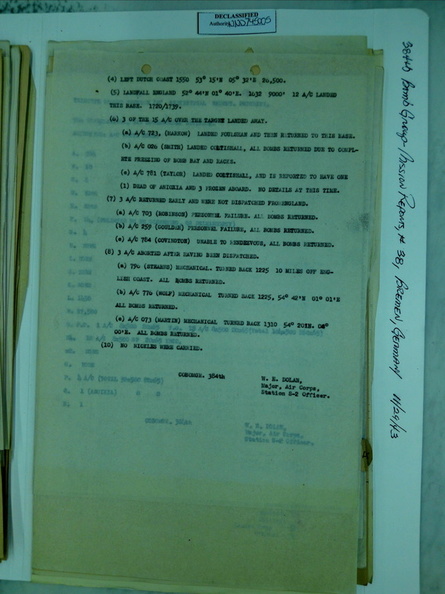 DECLASSIFIED
Authority NND 745005
(4) LEFT DUTCH COAST 1550 53° 15'N 05° 32'E 20,500.
(5) LANDFALL ENGLAND 52° 44'N 01° 40'E. 1632 9000' 12 A/C LANDED
THIS BASE. 1720/1739.
(6) 3 OF THE 15 A/C OVER THE TARGET LANDED AWAY.
(a) A/C 723, (HARRON) LANDED POULEHAM AND THEN RETURNED TO THIS BASE.
(b) A/C 026 (SMITH) LANDED COLTISHALL, ALL BOMBS RETURNED DUE TO COMPL-
ETE FREEZING OF BOMB BAY AND RACKS.
(c) A/C 781 (TAYLOR) LANDED COLTISHALL, AND IS REPORTED TO HAVE ONE
(1) DEAD OF ANIOXIA AND 3 FROZEN ABOARD. NO DETAILS AT THIS TIME.
(7) 3 A/C RETURNED EARLY AND WERE NOT DISPATCHED FROM ENGLAND.
(a) A/C 703 (ROBINSON) PERSONNEL FAILURE. ALL BOMBS RETURNED.
(b) A/C 259 (GOULDER) PERSONNEL FAILURE, ALL BOMBS RETURNED.
(c) A/C 784 (COVINGTON) UNABLE TO RENDEZVOUS, ALL BOMBS RETURNED.
(8) 3 A/C ABORTED AFTER HAVING BEEN DISPATCHED.
(a) 796 (STEARNS) MECHANICAL. TURNED BACK 1225 10 MILES OFF ENG-
LISH COAST. ALL BOMBS RETURNED.
(b) A/C 770 (WOLF) MECHANICAL TURNED BACK 1225, 54° 42'N 01° 01'E
ALL BOMBS RETURNED.
(c) A/C 073 (MARTIN) MECHANICAL TURNED BACK 1310 54° 20'N. 02°
00'E. ALL BOMBS RETURNED.
(10) NO NICKLES WERE CARRIED.
COBOMGR. 384th
W. E. DOLAN,
Major, Air Corps,
Station S-2 Officer.
384th Bomb Group - Mission Reports, # 38, Bremen Germany 11/29/43